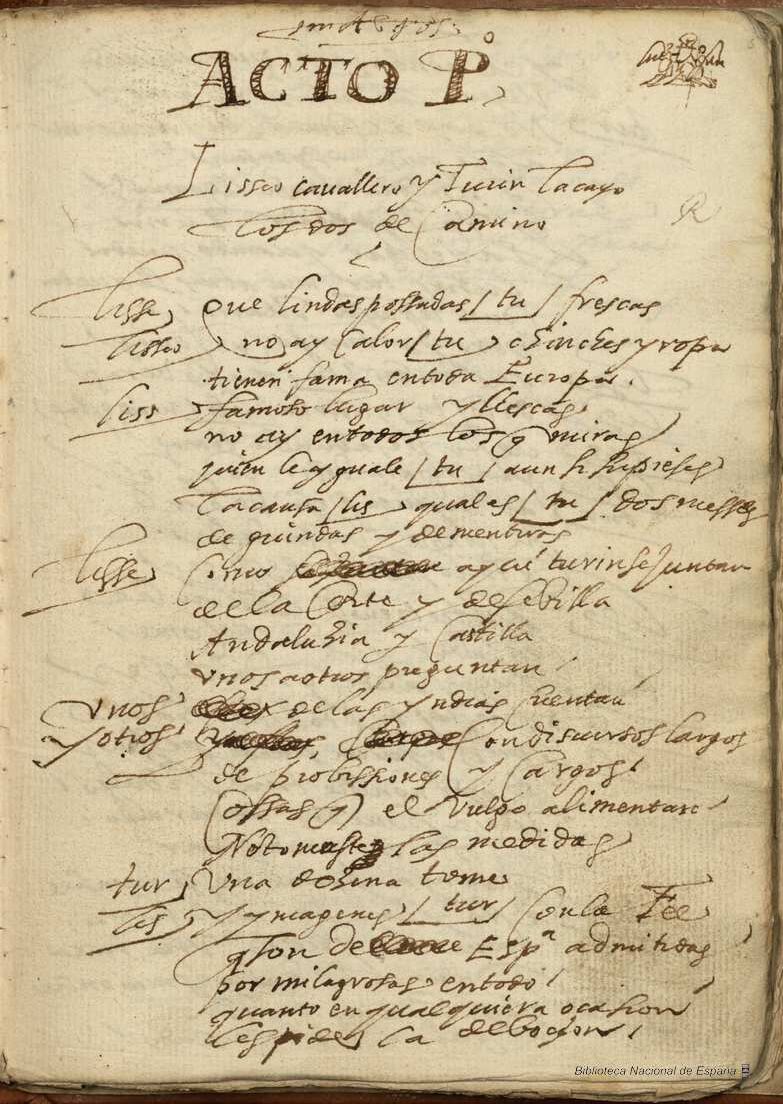 ACTO Pº
Lisseo cavallero y Turin lacayo
los dos de Camino
lisse, que lindas possadas / tu / frescas
lisseo no ay Calor / tu chinches y ropa
tienen fama en toda Europa.
liss famoso lugar yllescas
no ay en todos los q miras
quien le yguale / tu / aun si supieses
la causa / lis qual es / tu / dos messes
de guindas y de mentiras
lisse Como aqui turin se Juntan
de la Corte y de sebilla
Andaluzia y Castilla
unos a otros preguntan
unos de las yndias Cuentan
y otros Con discursos largos
de probissiones y Cargos
Cossas q el vulgo alimentan
No tomastes las medidas
tur, Una doçena tome
lis y ymagenes / tur / Con la Fee
q son de Espª admitidas
por milagrosas en todo
quanto en qualquiera ocasion
les pide la deboçion
Biblioteca Nacional de España